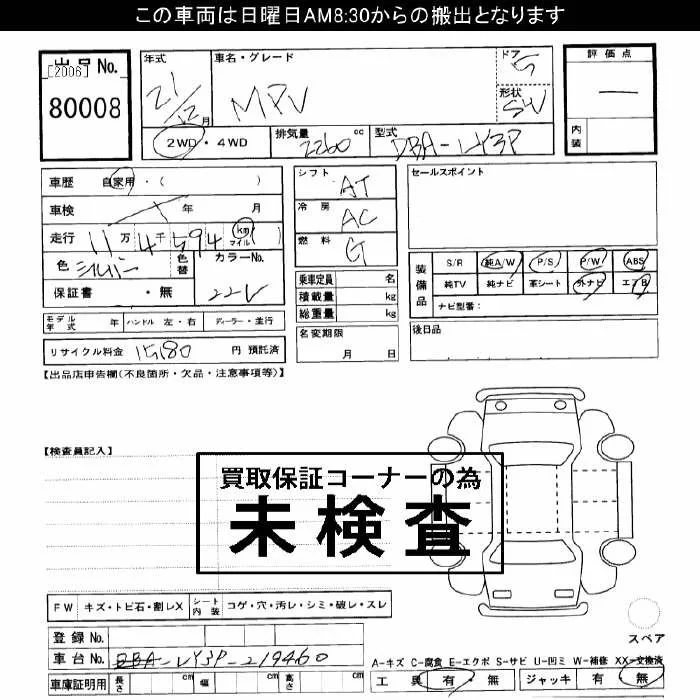 この車両は日曜日AM8:30からの搬出となります
出品No.
[2006]
80008
年式
21/12月
車名・グレード
MPV
ドア
5
形状
SW
2WD・4WD
排気量
2260 cc
型式
DBA-LY3P
評価点
—
内装
車歴 自家用・( )
車検 年 月
走行 11万4千594 km マイル
色 シルバー
色替
カラーNo.
22V
保証書 ・無
モデル年式 年 ハンドル 左・右 ディーラー・並行
リサイクル料金 15180 円 預託済
シフト AT
冷房 AC
燃料 G
乗車定員 名
積載量 kg
総重量 kg
名変期限
月 日
セールスポイント
装備品
S/R 純A/W P/S P/W ABS
純TV 純ナビ 革シート 外ナビ エアB
ナビ型番:
後日品
【出品店申告欄(不良箇所・欠品・注意事項等)】
【検査員記入】
買取保証コーナーの為
未検査
FW キズ・トビ石・割レX シート内装 コゲ・穴・汚レ・シミ・破レ・スレ
登録No.
車台No. DBA-LY3P-219460
車庫証明用 長さ cm 幅 cm 高さ cm
スペア
A-キズ C-腐食 E-エクボ S-サビ U-凹ミ W-補修 XX-交換済
工具 有・無 ジャッキ 有・無